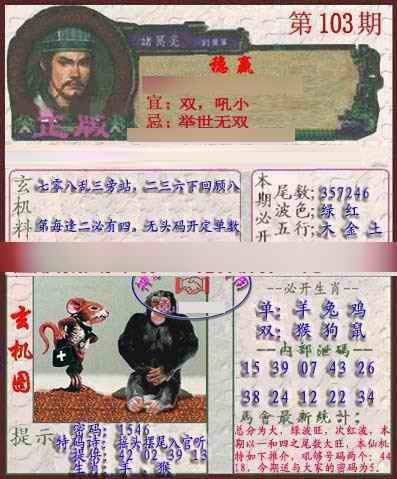 第103期
諸葛亮
稳赢
宜：双，吼小
忌：举世无双
正版
玄机料
七零八乱三旁站，二三六下回顾八
第每逢二必有四。无头码开定单数
本期必开
尾数：357246
波色：绿 红
五行：木 金 土
玄机图
--必开生肖--
单：羊 兔 鸡
双：猴 狗 鼠
--内部泄码--
15 39 07 43 26
38 24 12 22 34
--馬會最新统计：
总分为大，绿波旺，次红波，本
期以一和四之尾数大旺，本仙机
特如下推介，吼够号码两个：44
18，今期送与大家的密码为5.
提示
密码：1546
特码诗：摇头摆尾入官听
提倍：42 02 39 13
生肖：羊、猴